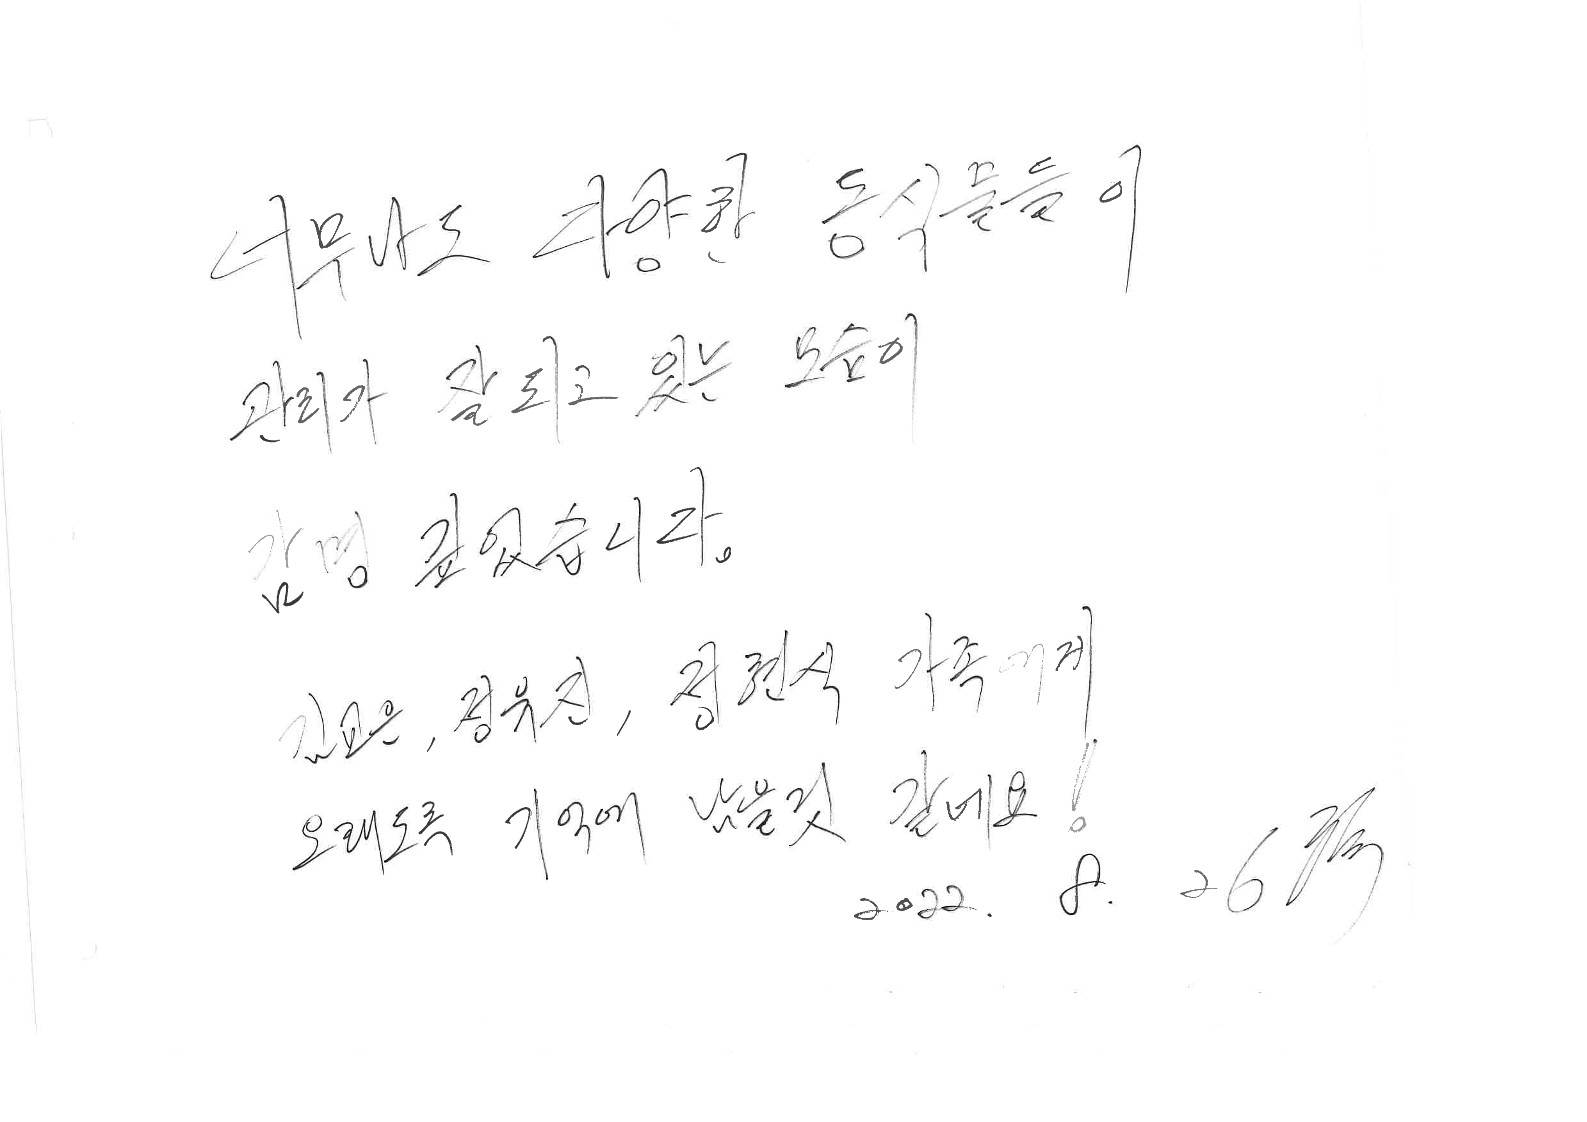 너무나도 다양한 동식물들이
관리가 잘 되고 있는 모습이
감명 깊었습니다.
김교은, 정유진, 정현식 가족에게
오래도록 기억에 남을것 같네요!
2022. 8. 26